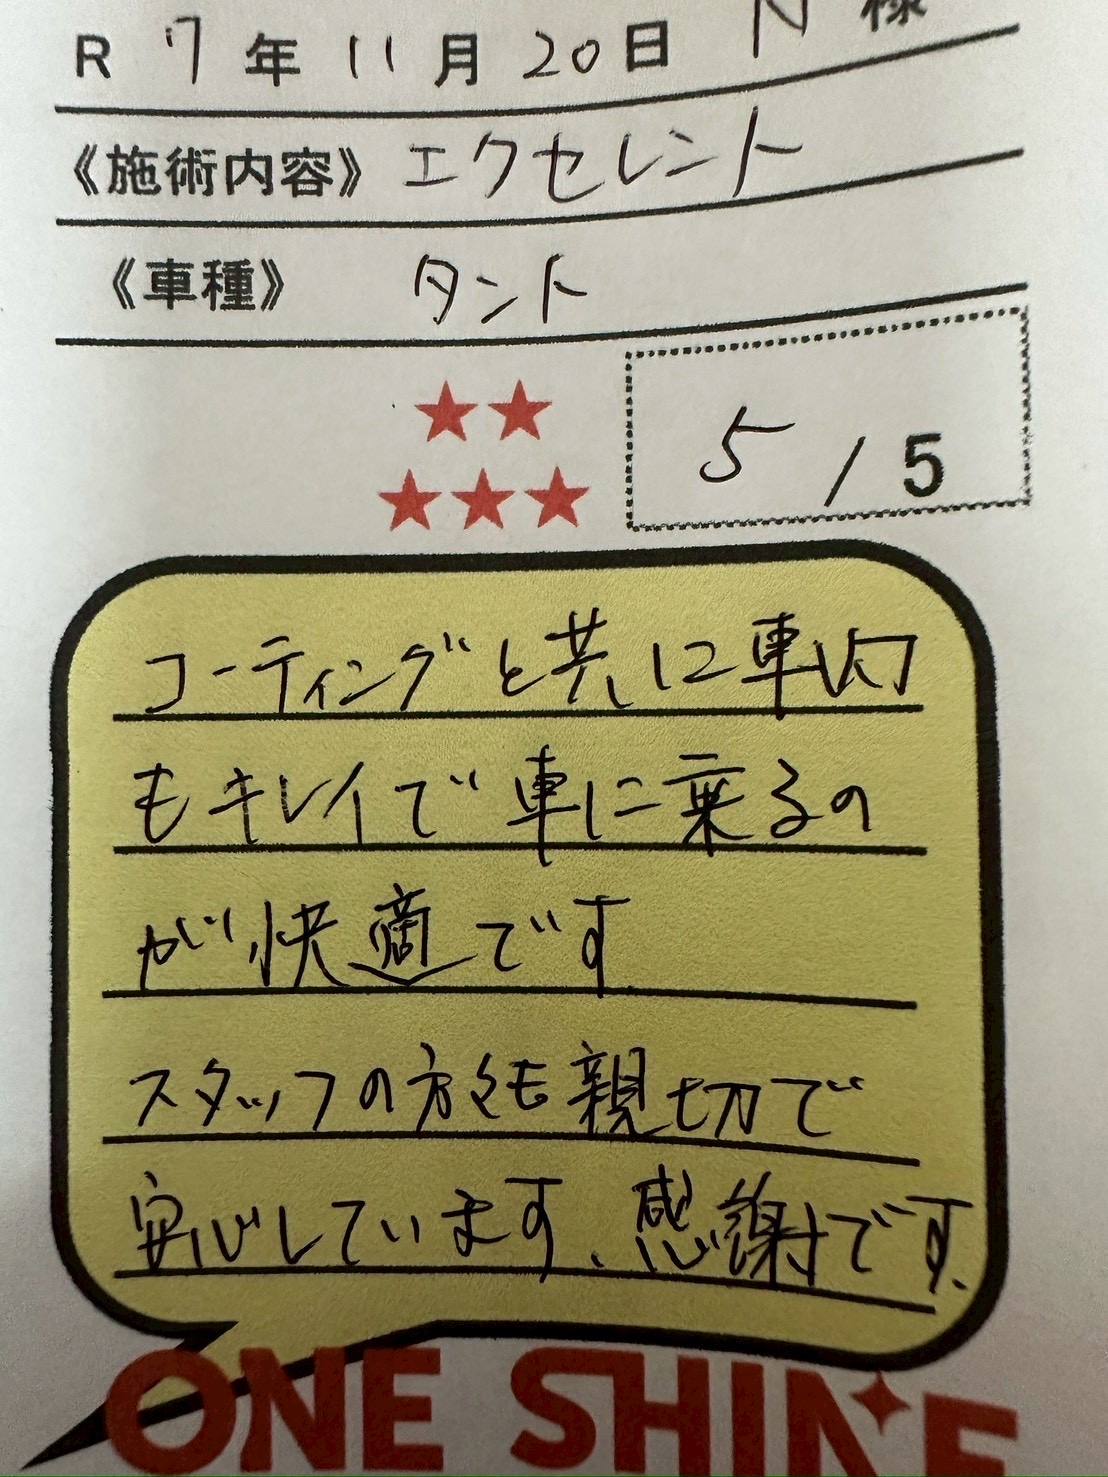 R 7年 11月 20日 N 様
《施術内容》 エクセレント
《車種》 タント
★★
★★★
5 / 5
コーティングと共に車内
もキレイで車に乗るの
が快適です
スタッフの方々も親切で
安心しています、感謝です、
ONE SHINE